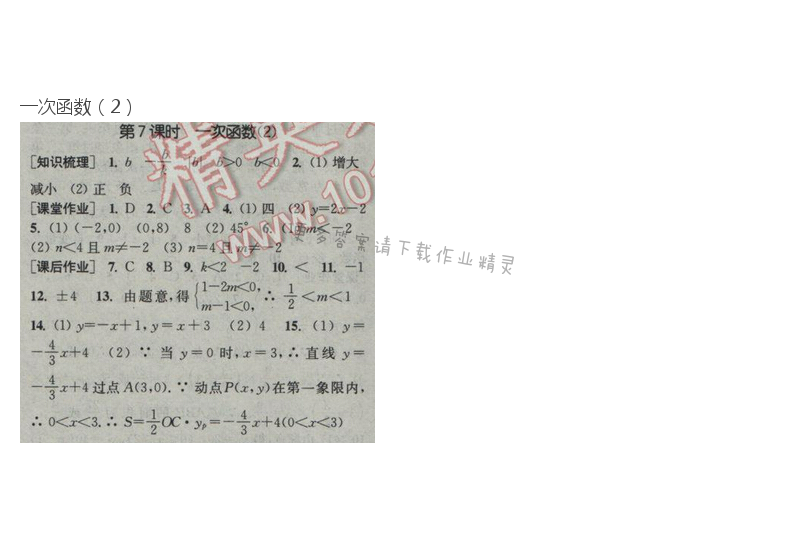 一次函数（2）
第7课时 一次函数(2)
[知识梳理] 1. b －b/k |b| b>0 b<0 2. (1) 增大
减小 (2) 正 负
[课堂作业] 1. D 2. C 3. A 4. (1) 四 (2) y=2x－2
5. (1) (－2,0) (0,8) 8 (2) 45° 6. (1) m<－2
(2) n<4 且 m≠－2 (3) n=4 且 m≠－2
[课后作业] 7. C 8. B 9. k<2 －2 10. < 11. －1
12. ±4 13. 由题意,得 {1－2m<0, m－1<0, ∴ 1/2<m<1
14. (1) y=－x+1, y=x+3 (2) 4 15. (1) y=
－4/3x+4 (2) ∵ 当 y=0 时, x=3, ∴ 直线 y=
－4/3x+4 过点 A(3,0). ∵ 动点 P(x,y) 在第一象限内,
∴ 0<x<3. ∴ S=1/2OC·yp=－4/3x+4(0<x<3)
请下载作业精灵